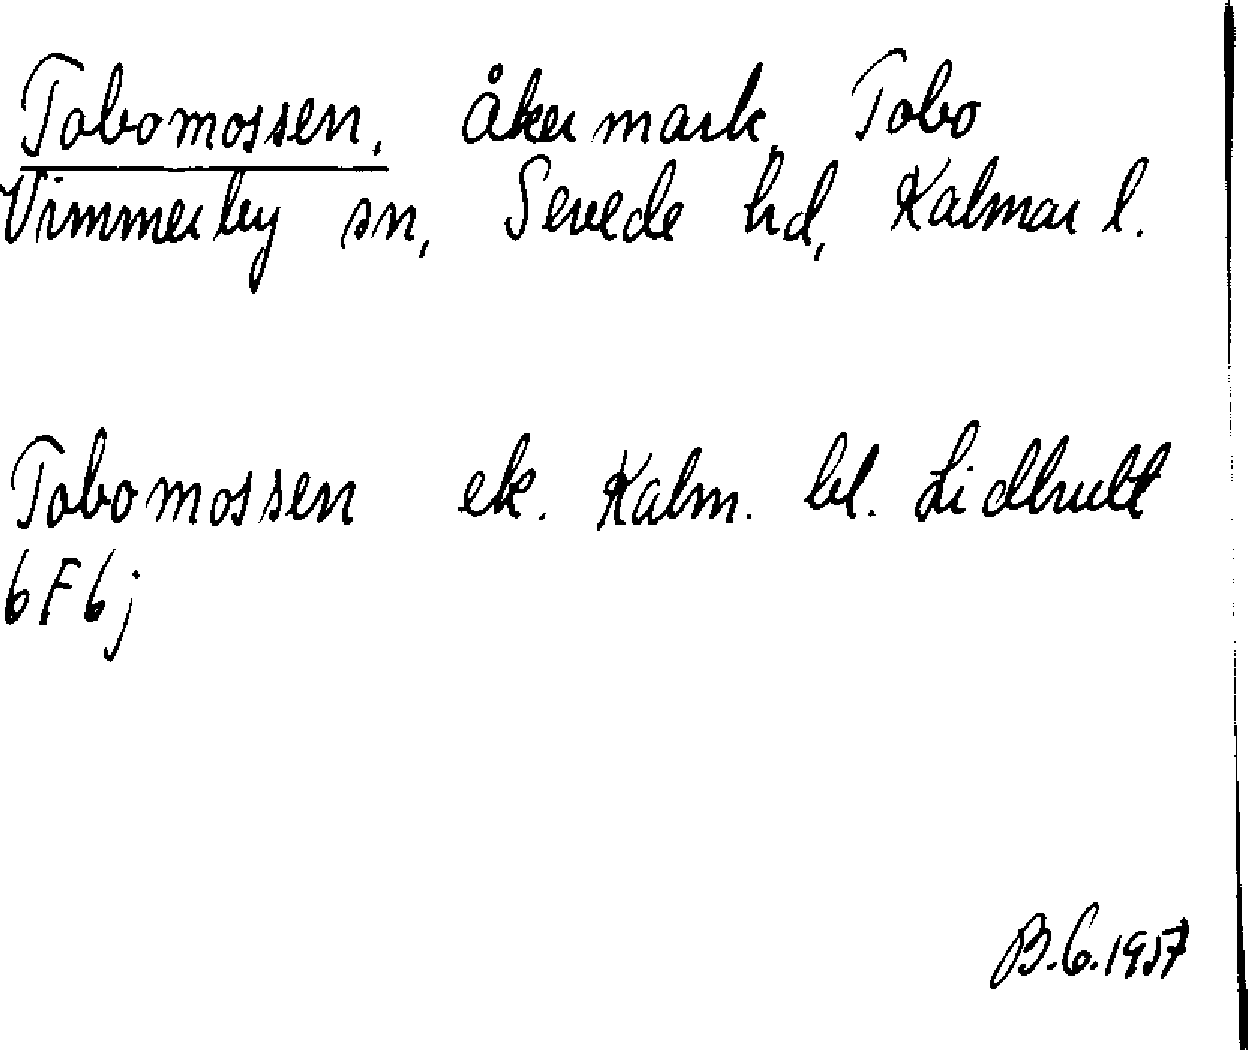 Tobomossen, Åkermark, Tobo
Vimmerby sn, Sevede hd, Kalmar l.
Tobomossen ek. Kalm. bl. Lidhult
6F6j
B.G.1957